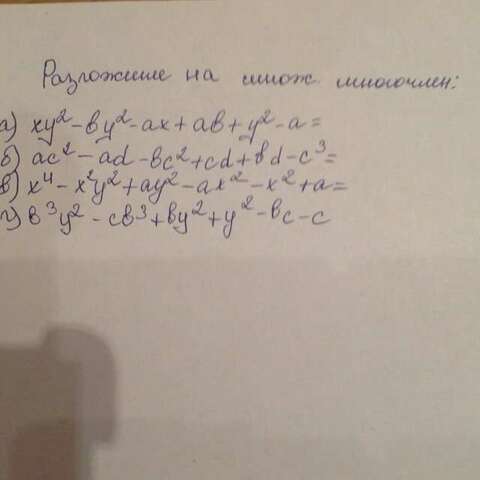 Разложите на множ. многочлен:
а) xy² - by² - ax + ab + y² - a =
б) ac² - ad - bc² + cd + bd - c³ =
в) x⁴ - x²y² + ay² - ax² - x² + a =
г) b³y² - cb³ + by² + y² - bc - c